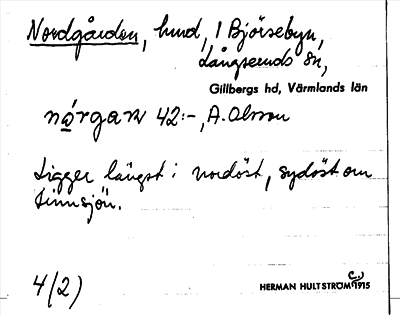 Nordgården, hmd, i Björsebyn,
Långseruds sn,
Gillbergs hd, Värmlands län
nórgan 42:-, A. Olsson
Ligger längst i nordöst, sydöst om
Finnsjön.
4/2)
HERMAN HULTSTRÖM 1915